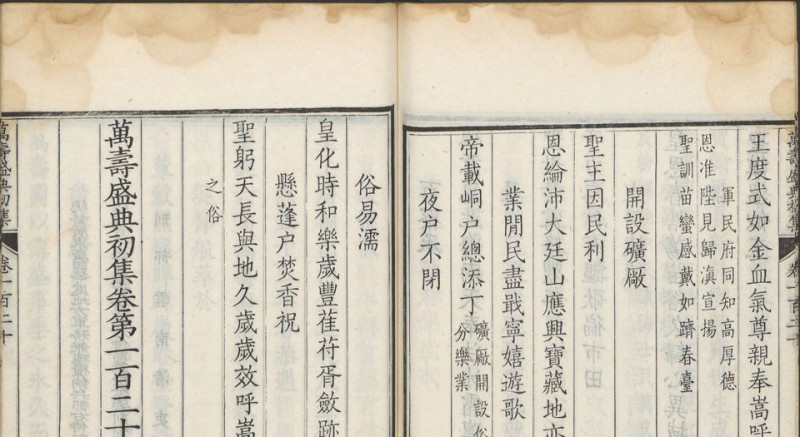 王度式如金血氣尊親奉嵩呼
軍民府同知高厚德
恩准陛見歸滇宣揚
聖訓苗蠻感戴如躋春臺
開設礦厰
聖主因民利
恩綸沛大廷山應興寶藏地亦
業閒民盡戢寧嬉遊歌
帝載峒户總添丁
礦厰開設俗
分樂業
夜户不閉
俗易濡
皇化時和樂歲豐萑苻胥斂跡
懸蓬户焚香祝
聖躬天長與地久歲歲效呼嵩
之俗
萬壽盛典初集卷第一百二十
萬壽盛典初集
卷一百二十